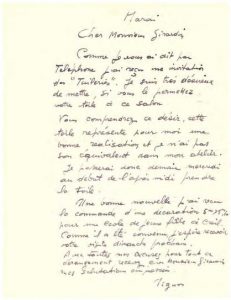 Mardi
Cher Monsieur Girardin
Comme je vous ai dit par
Téléphone j'ai reçu une invitation
des "Tuileries". Je suis très désireux
de mettre, si vous le permettez
votre toile à ce salon
Vous comprendrez ce désir, cette
toile représente pour moi une
bonne réalisation et je n'ai pas
son équivalent dans mon atelier.
Je passerai donc demain mercredi
au début de l'après midi prendre
la toile.
Une bonne nouvelle j'ai reçu
la commande d'une décoration
pour une école de jeunes filles
Comme il a été convenu, j'espère recevoir
votre visite dimanche prochain.
Avec toutes mes excuses pour tout ce
dérangement recevez cher Monsieur Girardin
mes Salutations